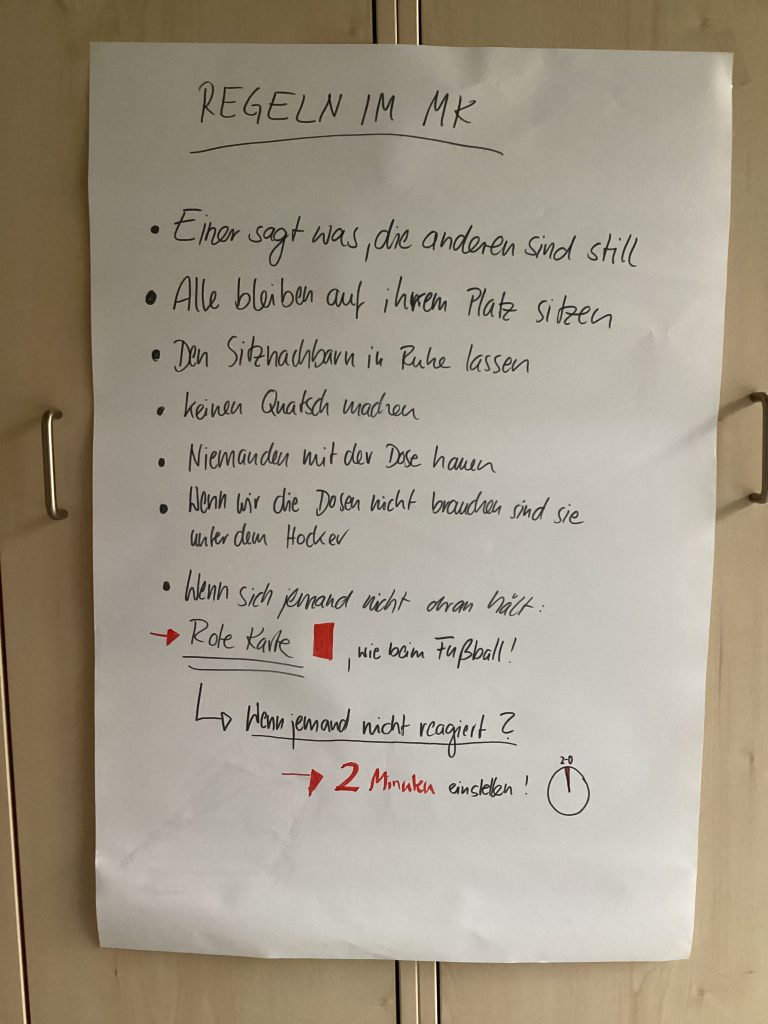 REGELN IM MK
• Einer sagt was, die anderen sind still
• Alle bleiben auf ihrem Platz sitzen
• Den Sitznachbarn in Ruhe lassen
• keinen Quatsch machen
• Niemanden mit der Dose hauen
• Wenn wir die Dosen nicht brauchen sind sie
unter dem Hocker
• Wenn sich jemand nicht dran hält:
→ Rote Karte , wie beim Fußball!
↳ Wenn jemand nicht reagiert?
→ 2 Minuten einstellen!
2-0